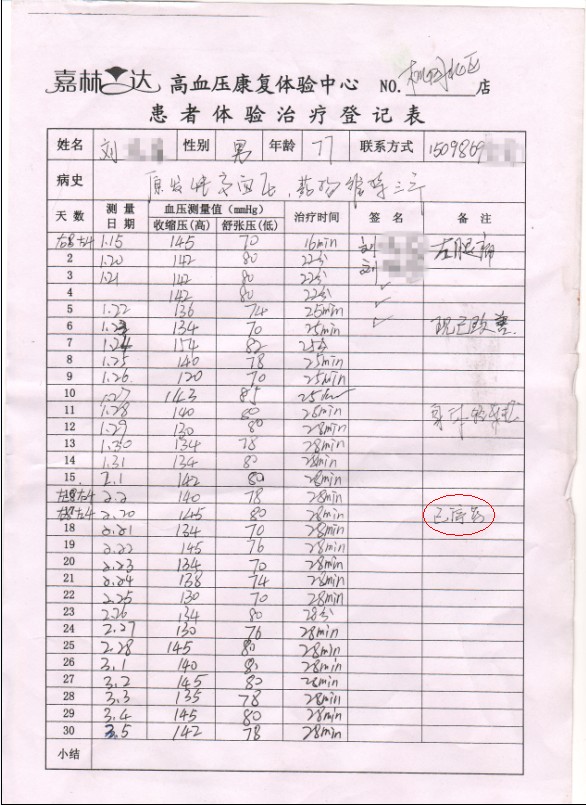 嘉林 达 高血压康复体验中心 NO. 店
患者体验治疗登记表
姓名 刘 性别 男 年龄 77 联系方式 1509869
病史 原发性高血压，药物维持三年
天数 测量日期 血压测量值（mmHg） 收缩压(高) 舒张压(低) 治疗时间 签名 备注
1.15 145 70 16min 刘 左腿痛
2 1.20 142 80 22分 刘
3 1.21 142 80 22分
4 142 80 22分 ✓
5 1.22 136 74 25min
6 1.23 134 70 25min ✓ 现已改善.
7 1.24 154 82
8 1.25 140 78 25min
9 1.26 120 70 25min
10 1.27 143 85
11 1.28 140 80 28min
12 1.29 130 80 28min
13 1.30 134 78 28min
14 1.31 134 80 28min
15 2.1 142 80 28min
2.2 140 78 28min
2.20 145 80 28min 已停药
18 2.21 134 70 28min
19 2.22 145 76 28min
20 2.23 134 70 28min
21 2.24 138 74 28min
22 2.25 130 70 28min
23 2.26 134 80 28分
24 2.27 130 76 28min
25 2.28 145 80 28min
26 3.1 140 80 28min
27 3.2 145 80 28min
28 3.3 135 78 28min
29 3.4 145 80 28min
30 3.5 142 78 28min
小结